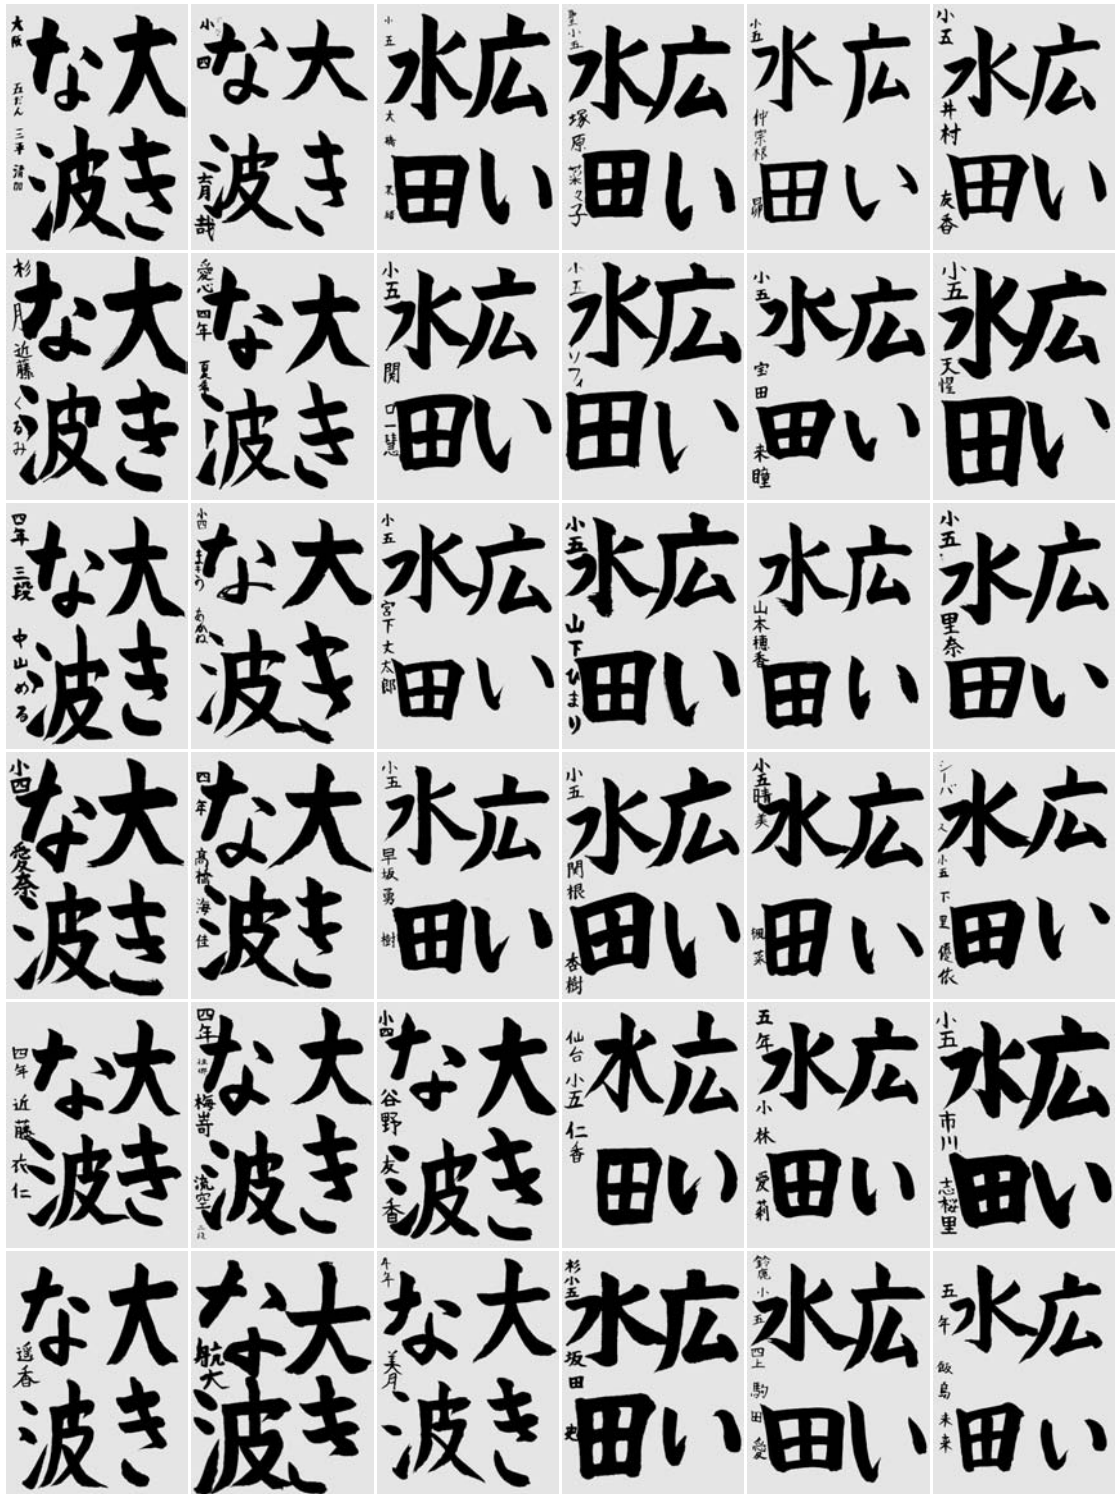 大き な波 大阪 五だん 三平 清加
大き な波 小四 育哉
広い 水田 小五 大橋 果緒
広い 水田 聖小五 塚原 菜々子
広い 水田 小五 仲宗根 昴
広い 水田 小五 井村 友香
大き な波 杉 近藤 くるみ
大き な波 愛心 四年 夏希
広い 水田 小五 関口 一慧
広い 水田 小五 ソフィ
広い 水田 小五 宝田 来瞳
広い 水田 小五 天惺
大き な波 四年 三段 中山 める
大き な波 小四 あかね
広い 水田 小五 宮下 丈太郎
広い 水田 小五 山下 ひまり
広い 水田 山本 穂香
広い 水田 小五 里奈
大き な波 小四 愛奈
大き な波 四年 高橋 海佳
広い 水田 小五 早坂 勇樹
広い 水田 小五 関根 杏樹
広い 水田 小五 晴美 楓菜
広い 水田 シーバス 小五 下里 優依
大き な波 四年 近藤 衣仁
大き な波 四年 梅嵜 流空 二段
大き な波 小四 谷野 友香
広い 水田 仙台 小五 仁香
広い 水田 五年 小林 愛莉
広い 水田 小五 市川 志桜里
大き な波 遥香
大き な波 航大
大き な波 美月
広い 水田 杉小五 坂田
広い 水田 鈴鹿 小五 四上 駒田 愛
広い 水田 五年 飯島 未来